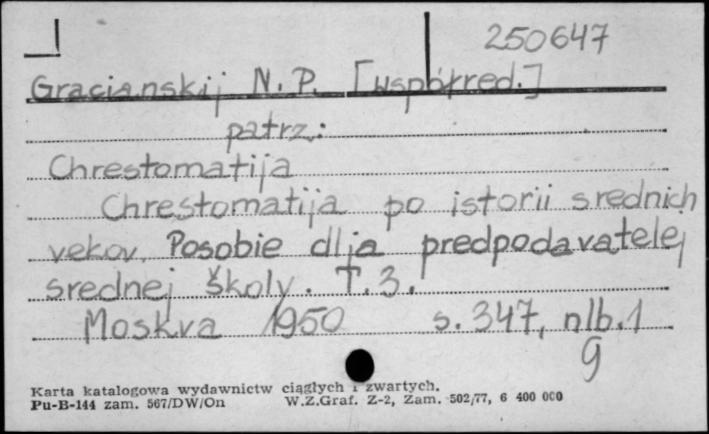 250647
Gracianskij N. P. [współred.]
patrz:
Chrestomatija
Chrestomatija po istorii srednich
vekov. Posobie dlja predpodavatelej
srednej školy. T. 3.
Moskva 1950 s. 347, nlb. 1
g
Karta katalogowa wydawnictw ciągłych i zwartych.
Pu-B-144 zam. 567/DW/On W.Z.Graf. Z-2, Zam. 502/77, 6 400 000